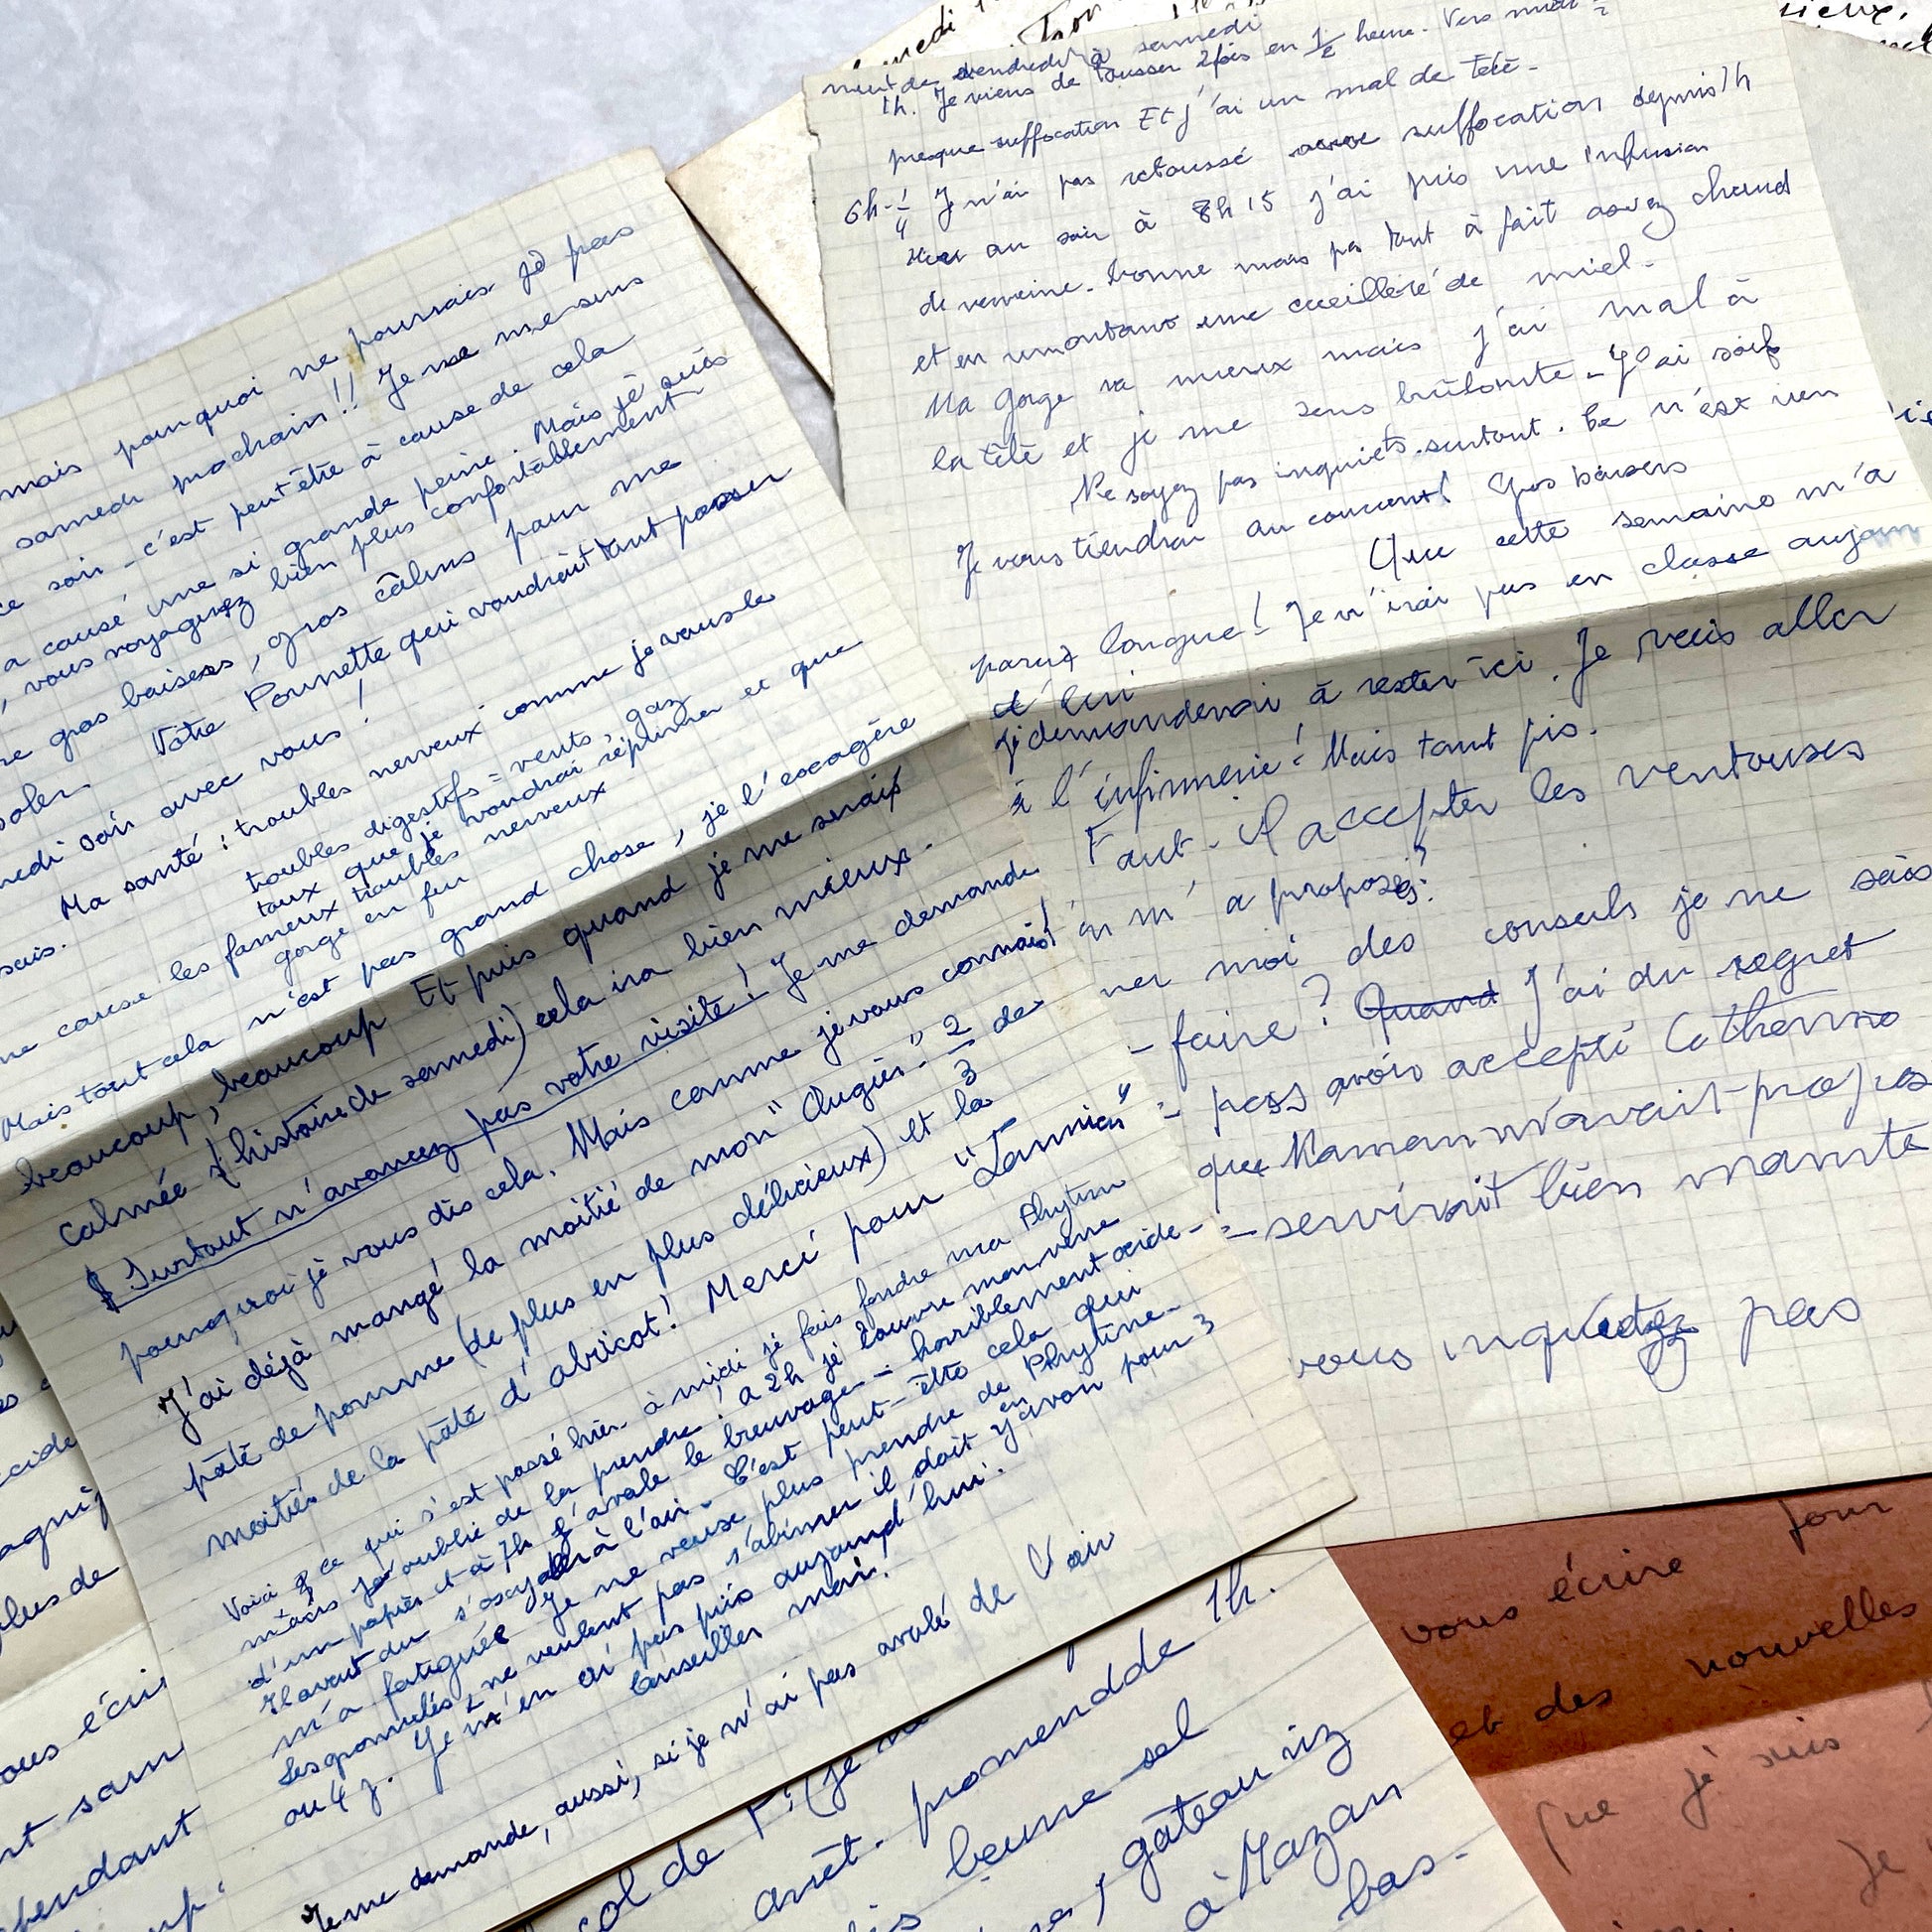 mais pourquoi ne pourrais je pas
samedi prochain !! Je me sens
ce soir - c'est peut être à cause de cela
a causé une si grande peine. Mais je suis
, vous voyagerez bien plus confortablement
gros baisers, gros câlins pour me
Votre Pounette qui voudrait tant passer
soir avec vous !
Ma santé : troubles nerveux comme je vous le
sais.
troubles digestifs = vents, gaz
toux que je voudrai réprimer et que
cause les fameux troubles nerveux
gorge en feu
Mais tout cela n'est pas grand chose, je l'exagère
beaucoup, beaucoup Et puis quand je me serais
calmée (l'histoire de samedi) cela ira bien mieux.
Surtout n'avancez pas votre visite ! Je me demande
pourquoi je vous dis cela. Mais comme je vous connais !
J'ai déjà mangé la moitié de mon "Augier" - 2/3 de
pâté de pomme (de plus en plus délicieux) et la
moitiés de la pâté d'abricot ! Merci pour "Lannien"
Voici ce qui s'est passé hier à midi je fais fondre ma Phytin
mais j'oublie de la prendre ! a 2h je couvre mon verre
d'un papier et à 7h j'avale le breuvage = horriblement acide -
Il avait du s'oxyder à l'air. C'est peut-être cela qui
m'a fatiguée Je ne veuse plus prendre de Phytine -
Les granulés ne veulent pas s'abîmer il doit y en avoir pour 3
ou 4 j. Je n'en ai pas pris aujourd'hui.
Conseiller moi !
Je me demande, aussi, si je n'ai pas avalé de
nuit de vendredi à samedi
1h. Je viens de tousser 2 fois en 1/2 heure. Vers
presque suffocation Et j'ai un mal de tête -
6h-1/4 Je n'ai pas retoussé avec suffocation depuis 1h
Hier au soir à 8h15 j'ai pris une infusion
de verveine. bonne mais pas tout à fait assez chaud
et en remontant une cueilleré de miel -
Ma gorge va mieux mais j'ai mal à
la tête et je me sens brûlante - J'ai soif
Ne soyez pas inquiets surtout. Ce n'est rien
Je vous tiendrai au courant ! Gros baisers
Que cette semaine m'a
parut longue ! Je n'irai pas en classe aujour
d'hui
Je demanderai à rester ici. Je vais aller
à l'infirmerie ! Mais tant pis.
Faut-il accepter les ventouses
m'a proposés ?
ner moi des conseils je ne sais
- faire ? Quand J'ai du regret
pas avoir accepté
que Maman m'avait propos
- servirait bien mainte
vous inquiétez pas
vous écrire pour
et des nouvelles
que je suis
Je
col de
arrêt. promendde 1h.
beurre sel
, gâteau riz
à Mazan
bas -
ous écrir
pendant
lus de